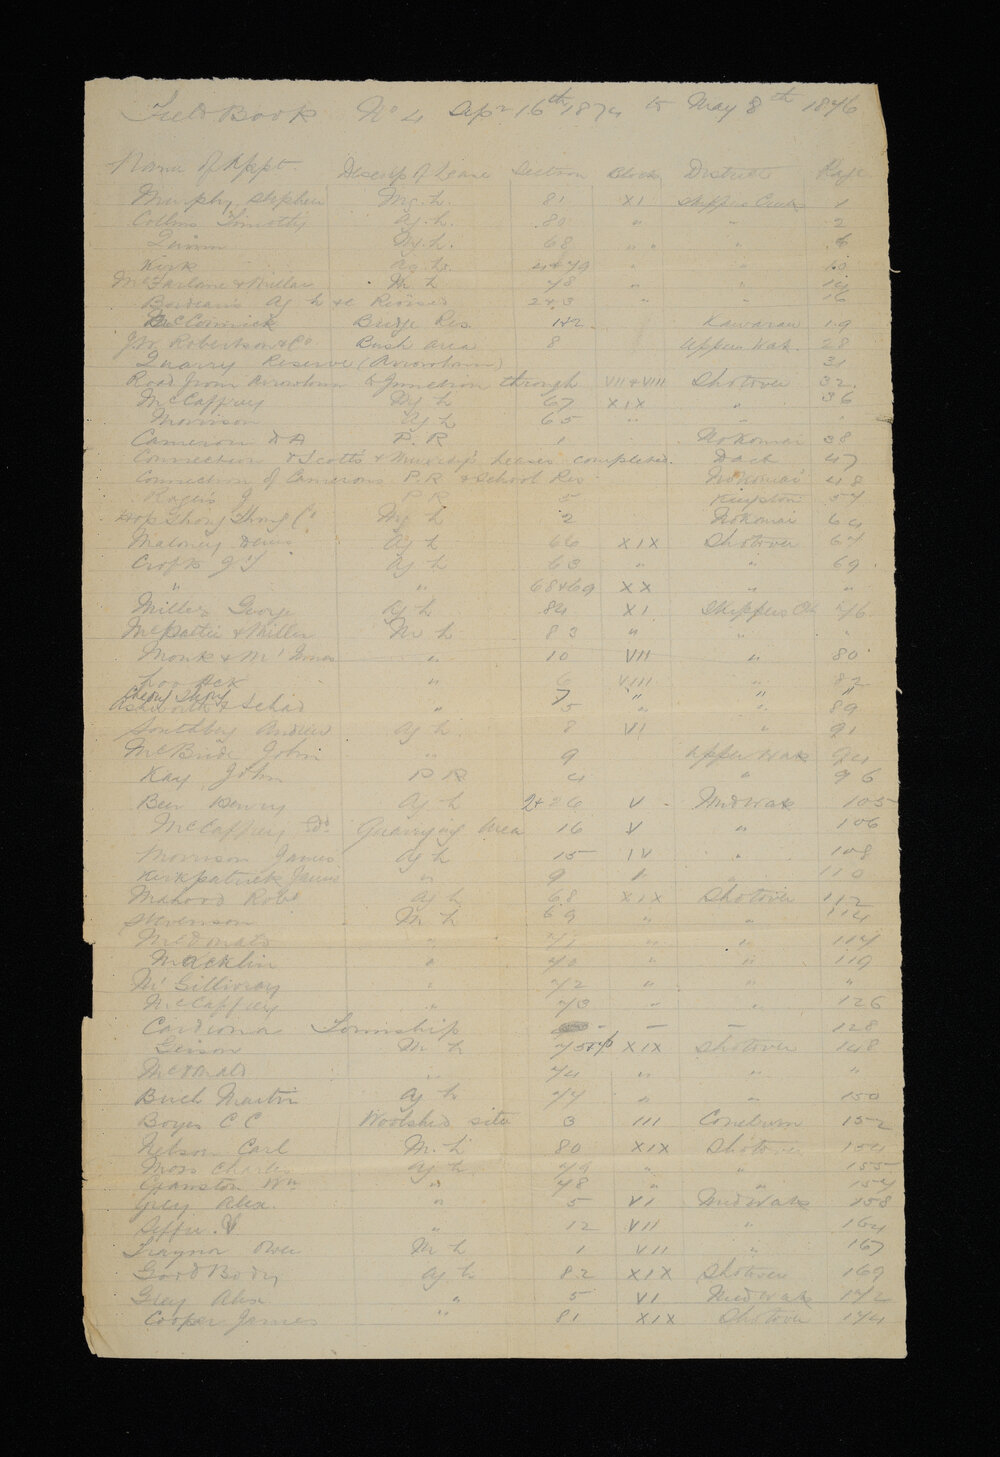 Field Book No 4 Apr 16th 1874 to May 8th 1876
Name of Appt. Descrip of Lease Section Block District Page
Murphy Stephen Mg. L. 81 XI Skippers Creek 1
Collins Timothy Ag. L. 80 " " 2
Quinn Mg. L. 68 " " " 6
Kirk Ag. Ls. 4+79 " " 10
McFarlane & Millar M L 78 " " 14
Bordeau's Ag L &c Revised 2+3 " " 16
McCormick Bridge Res. 1+2 Kawarau 19
J.W. Robertson & Co Bush area 8 Upper Wak. 28
Quarry Reserve (Arrowtown) 31
Road from Arrowtown to Junction through VII & VIII Shotover 32
McCaffrey Ag L 67 XIX " 36
Morrison Ag L 65 " " "
Cameron D A P. R 1 Nokomai 38
Connection & Scott's & Murdy's Leases completed. Dack 47
Connection of Camerons P.R. & School Res Nokomai 48
Rogers J P R 5 Kingston 54
Hop Shong Thong Co Mg L 2 Nokomai 64
Maloney Denis Ag L 66 XIX Shotover 67
Crofts J T Ag L 63 " " 69
" " 68+69 XX " "
Miller George Ag L 84 XI Skippers Ck 76
McPattie & Miller M L 83 " " "
Monk & McInnes " 10 VII " 80
Loo Ack " 6 VIII " 82
Cheong Shong 7 " " "
Ashworth & Schad " 5 " " 89
Southby Andrew Ag L 8 VI " 91
McBride John " 9 Upper Wak 94
Kay John P R 4 " 96
Beer Henry Ag L 2+26 V Midwak 105
McCaffrey Ed. Quarrying Area 16 V " 106
Morrison James Ag L 15 IV " 108
Kirkpatrick James " 9 V " 110
Mahood Robt Ag L 68 XIX Shotover 112
Stevenson M L 69 " " 114
McDonald " 71 " " 117
Macklin " 70 " " 119
McGillivray " 72 " " "
McCaffrey " 73 " " 126
Cardrona Township — — 128
Geison M L 75 XIX Shotover 148
McDonald " 74 " " "
Buch Martin Ag L 77 " " 150
Boyes C C Woolshed site 3 III Coneburn 152
Nelson Carl M. L 80 XIX Shotover 154
Moss Charles Ag L. 79 " " 155
Cranston Wm " 78 " " 157
Grey Alex. " 5 VI Mid Wak 158
" 12 VII " 164
Traynor Owen M L 1 VII " 167
Good Body Ag L 82 XIX Shotover 169
Grey Alex " 5 VI Mid Wak 172
Cooper James " 81 XIX Shotover 174